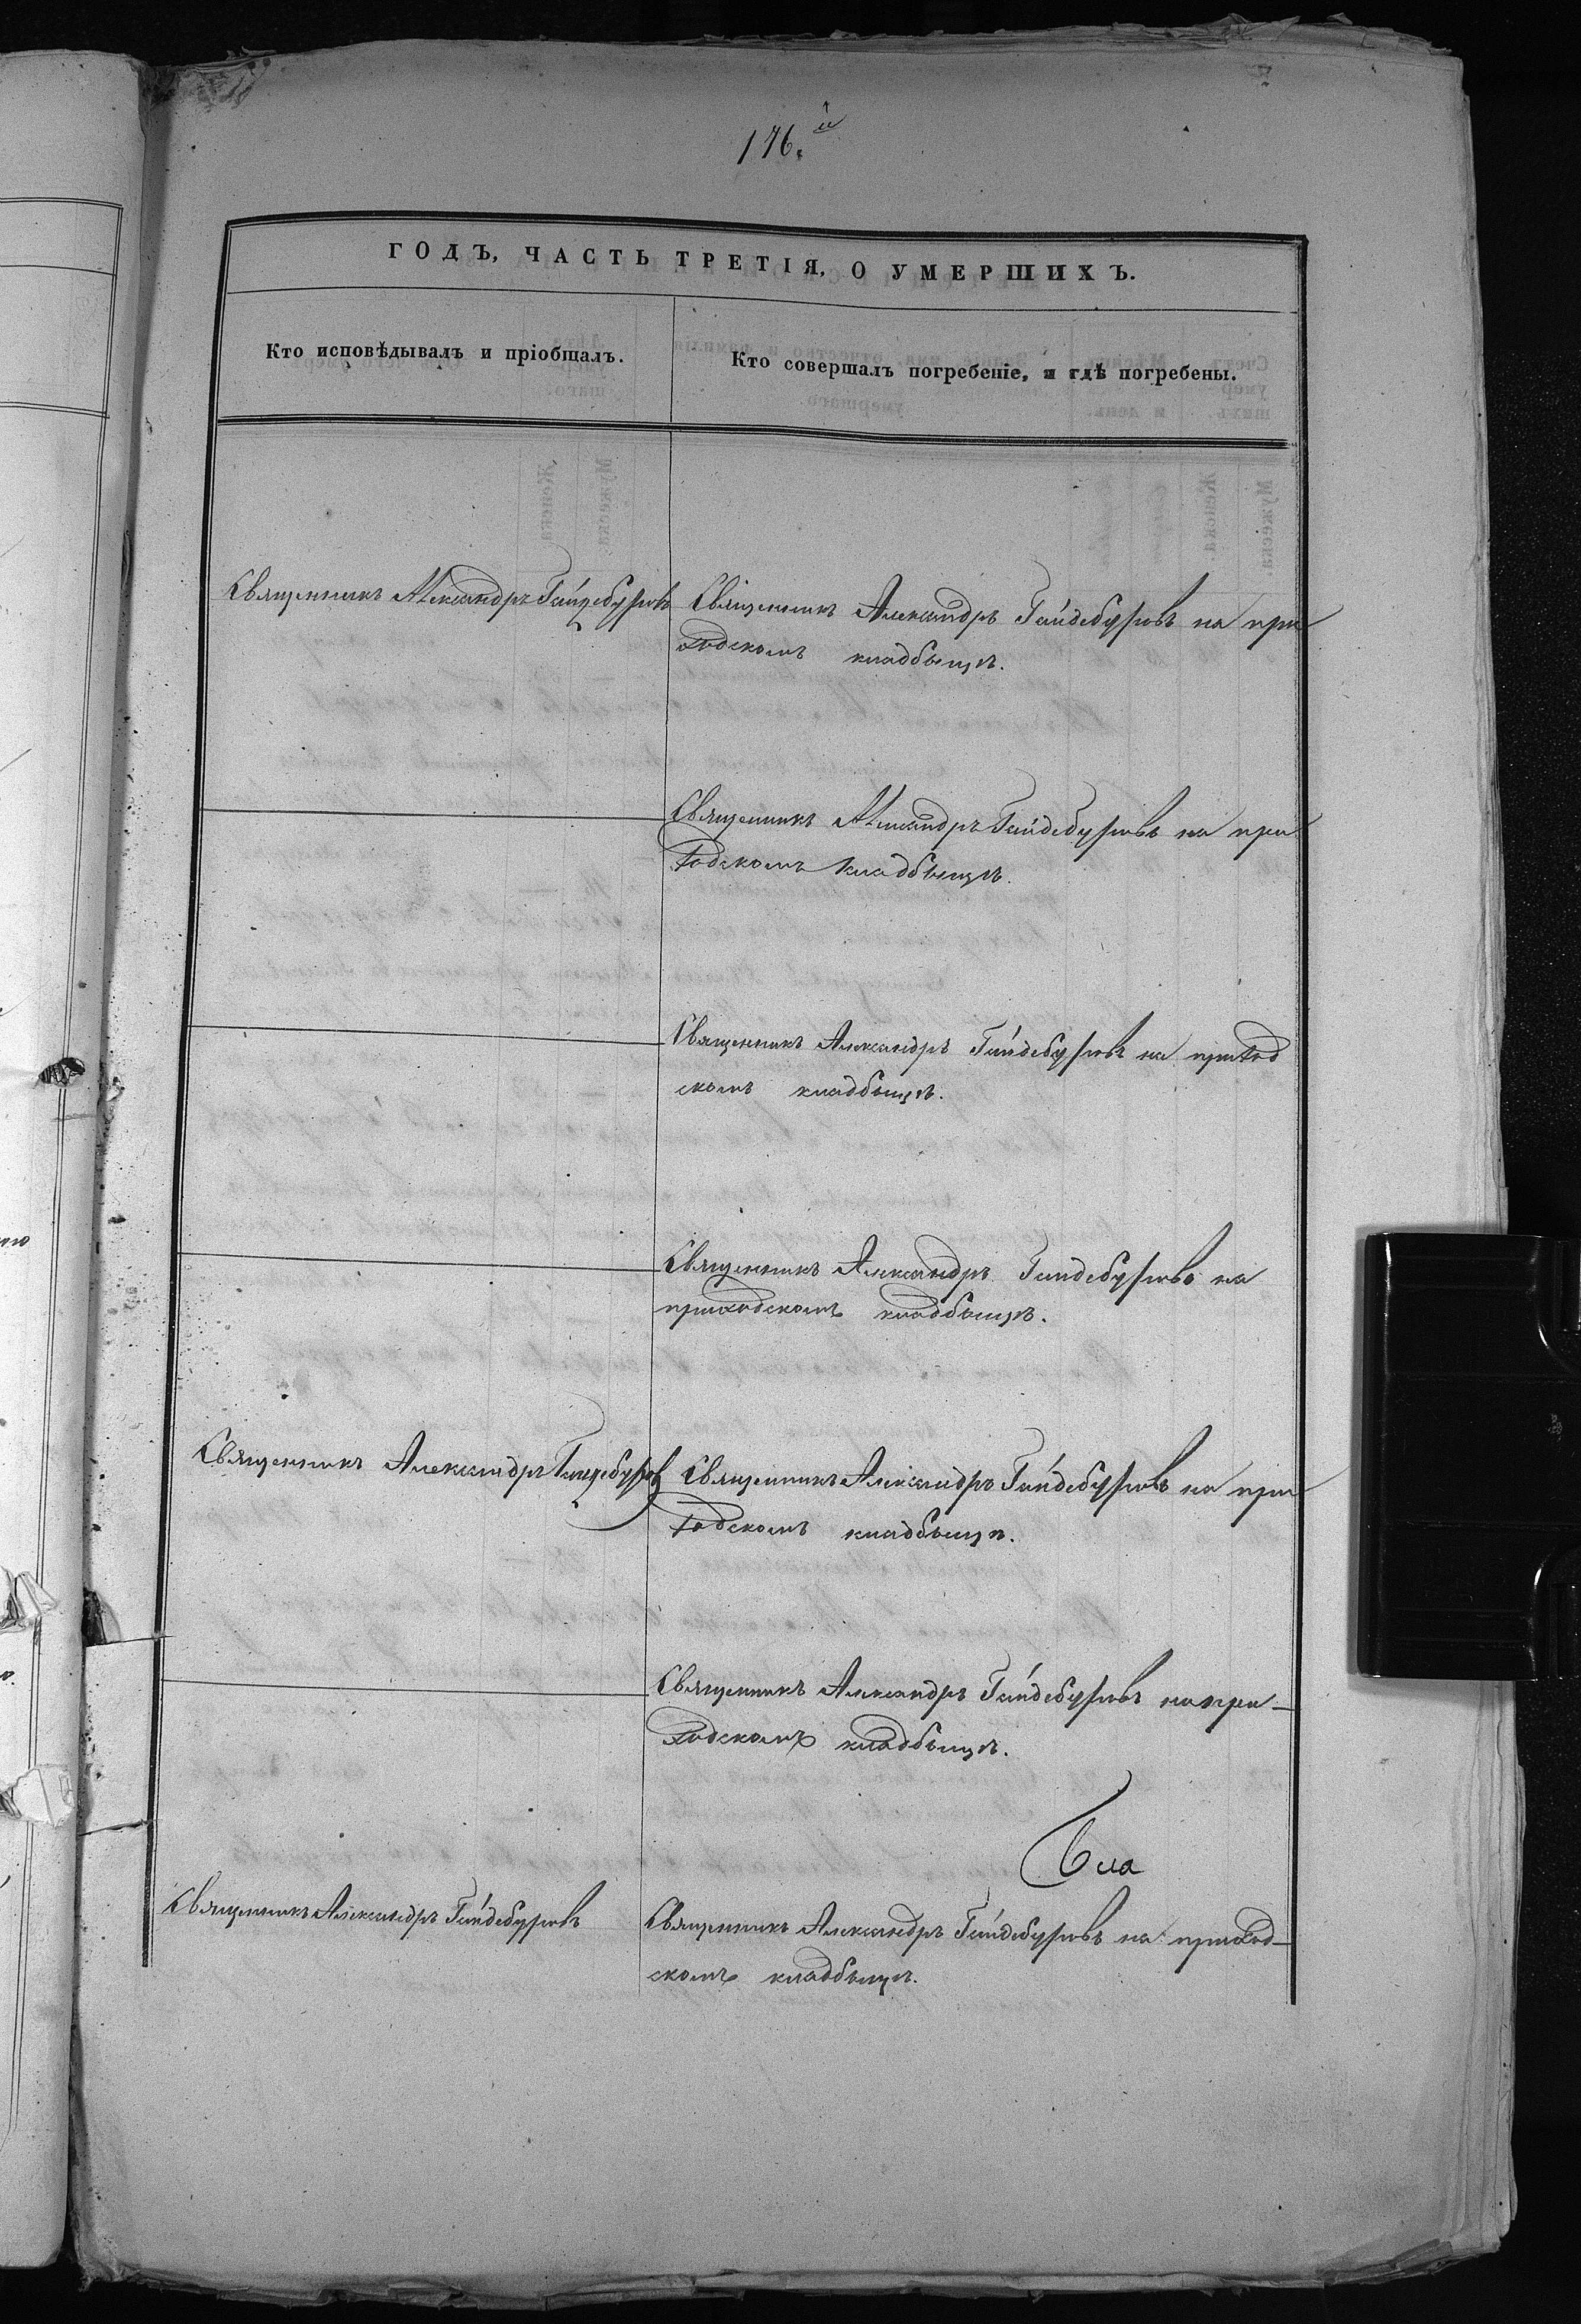 176.й
ГОДЪ, ЧАСТЬ ТРЕТІЯ, О УМЕРШИХЪ.
Кто исповѣдывалъ и пріобщалъ.
Кто совершалъ погребеніе, и гдѣ погребены.
Священникъ Александръ Гайдебуровъ
Священникъ Александръ Гайдебуровъ на при
ходскомъ кладбищѣ.
Священникъ Александръ Гайдебуровъ на при
ходскомъ кладбищѣ.
Священникъ Александръ Гайдебуровъ на приход
скомъ кладбищѣ.
Священникъ Александръ Гайдебуровъ на
приходскомъ кладбищѣ.
Священникъ Александръ Гайдебуровъ
Священникъ Александръ Гайдебуровъ на при
ходскомъ кладбищѣ.
Священникъ Александръ Гайдебуровъ на при-
ходскомъ кладбищѣ.
Священникъ Александръ Гайдебуровъ
Священникъ Александръ Гайдебуровъ на приход-
скомъ кладбищѣ.